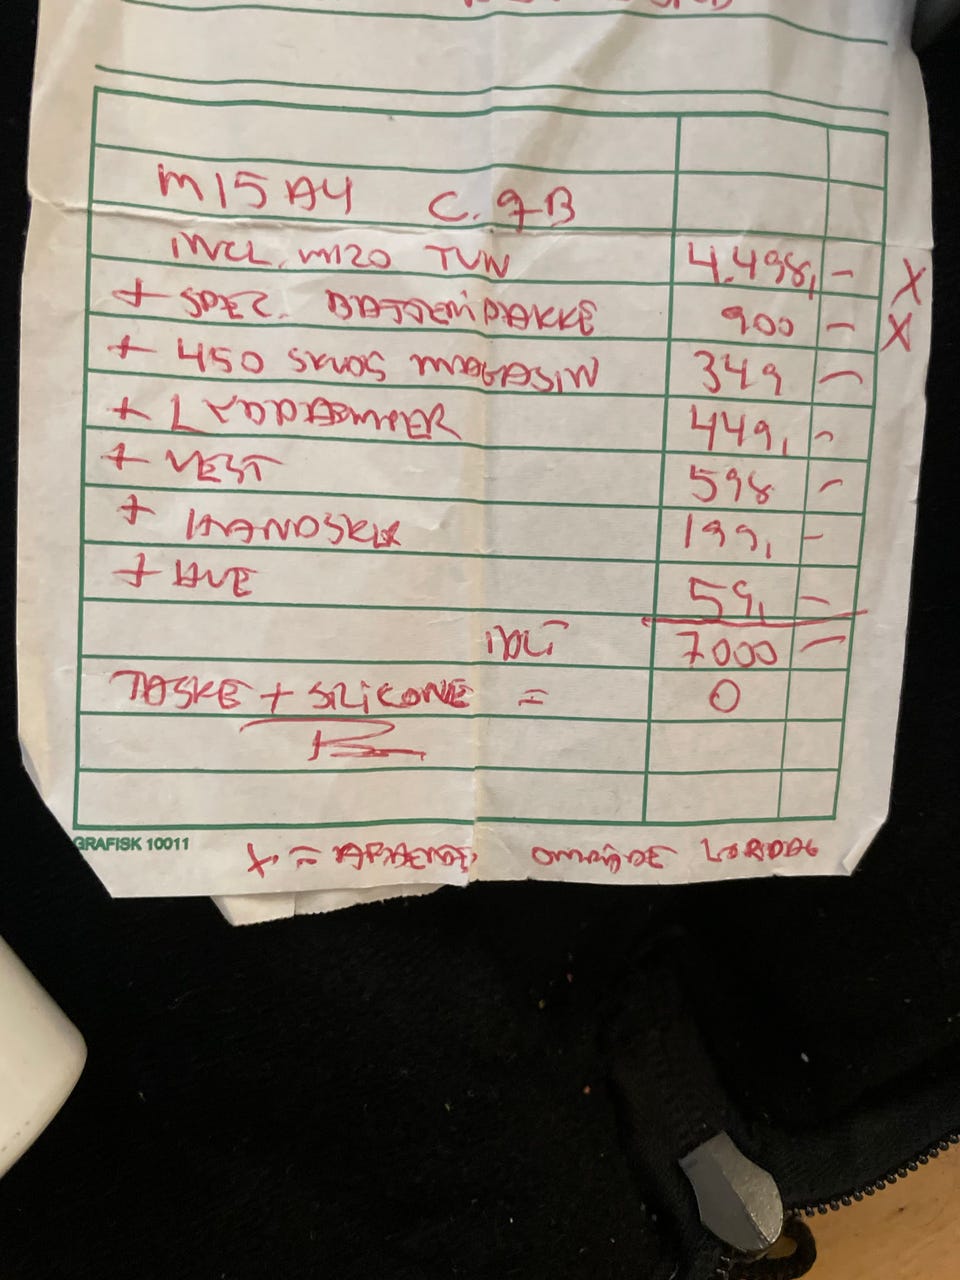 M15A4 C.QB
INCL. M120 TUN 4.498,- X
+ SPEC. BATTERIPAKKE 900 - X
+ 450 SKUDS MAGASIN 349 -
+ 1 LYDDÆMPER 449,-
+ VEST 598 -
+ HANDSKER 199,-
+ HUE 59,-
IALT 7000 -
TASKE + SILICONE = 0
GRAFISK 10011
X = OMRÅDE LØRDAG